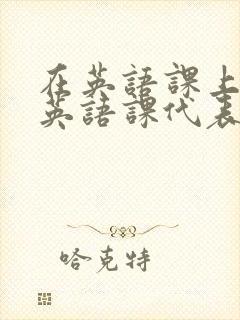 在英語課上
英語課代表
哈克特